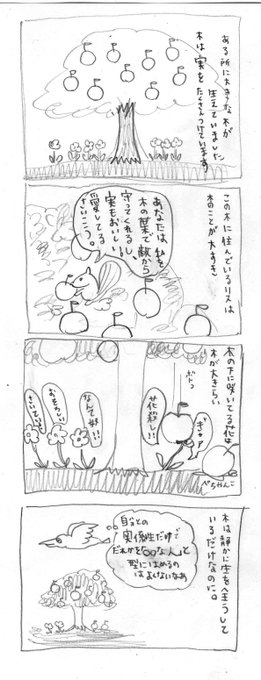 ある所に大きな木が
生えていました
木は実を
たくさんつけています
この木に住んでいるリスは
木のことが大すき
あなたは、私を
木の葉で敵から
守ってくれるし、
実もおいしい!!
さいこう。
愛してる
木の下に咲いてる花は
木が大きらい
ボトっ
ぎゃア
花殺し!!
なんて奴!!
おそろしい
さいていよ!!
ぺちゃんこ
木は静かに生を全うして
いるだけなのに。
自分との
関係性だけで
だれかを「○○な人」と
型にはめるの
はよくないなあ